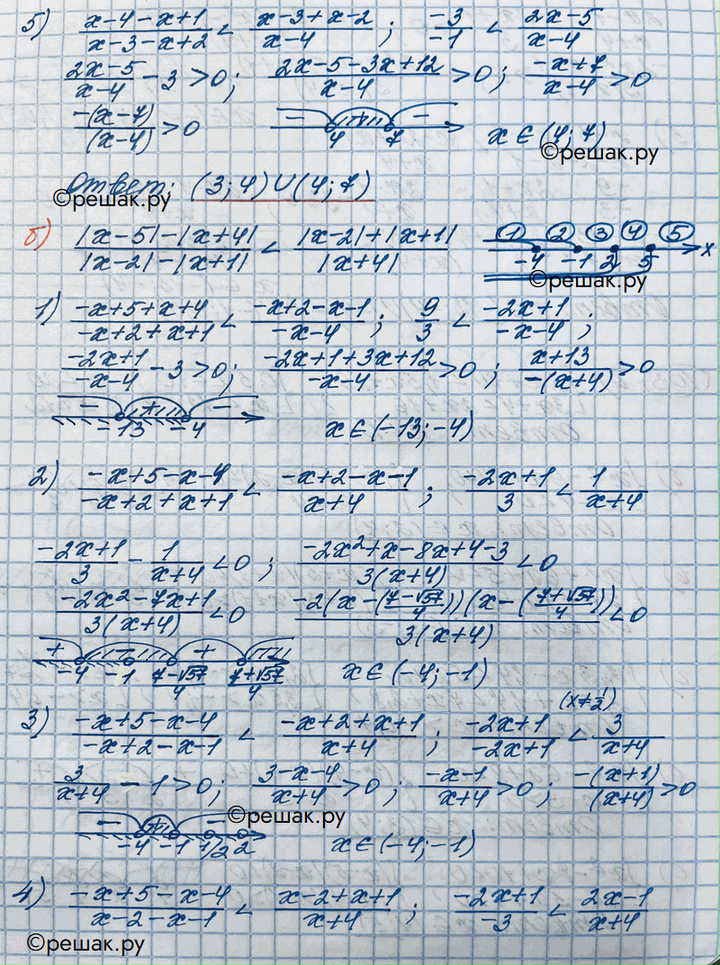 5) (x-4-x+1)/(x-3-x+2) < (x-3+x-2)/(x-4) ; (-3)/(-1) < (2x-5)/(x-4)
(2x-5)/(x-4) - 3 > 0 ; (2x-5-3x+12)/(x-4) > 0 ; (-x+7)/(x-4) > 0
(-(x-7))/((x-4)) > 0 - + - 4 7 x ∈ (4; 7)
©решак.ру
Ответ: (3; 4) ∪ (4; 7)
©решак.ру
б) (|x-5|-|x+4|)/(|x-2|-|x+1|) < (|x-2|+|x+1|)/(|x+4|) 1 2 3 4 5 -4 -1 2 5 x
©решак.ру
1) (-x+5+x+4)/(-x+2+x+1) < (-x+2-x-1)/(-x-4) ; 9/3 < (-2x+1)/(-x-4) ;
(-2x+1)/(-x-4) - 3 > 0 ; (-2x+1+3x+12)/(-x-4) > 0 ; (x+13)/(-(x+4)) > 0
- + - -13 -4 x ∈ (-13; -4)
2) (-x+5-x-4)/(-x+2+x+1) < (-x+2-x-1)/(x+4) ; (-2x+1)/3 < 1/(x+4)
(-2x+1)/3 - 1/(x+4) < 0 ; (-2x²+x-8x+4-3)/(3(x+4)) < 0
(-2x²-7x+1)/(3(x+4)) < 0 (-2(x-((7-√57)/4))(x-((7+√57)/4)))/(3(x+4)) < 0
+ - + - -4 -1 (7-√57)/4 (7+√57)/4 x ∈ (-4; -1)
(x≠1/2)
3) (-x+5-x-4)/(-x+2-x-1) < (-x+2+x+1)/(x+4) ; (-2x+1)/(-2x+1) < 3/(x+4)
3/(x+4) - 1 > 0 ; (3-x-4)/(x+4) > 0 ; (-x-1)/(x+4) > 0 ; (-(x+1))/((x+4)) > 0
©решак.ру
- + - - -4 -1 1/2 2 x ∈ (-4; -1)
4) (-x+5-x-4)/(x-2-x-1) < (x-2+x+1)/(x+4) ; (-2x+1)/(-3) < (2x-1)/(x+4)
©решак.ру